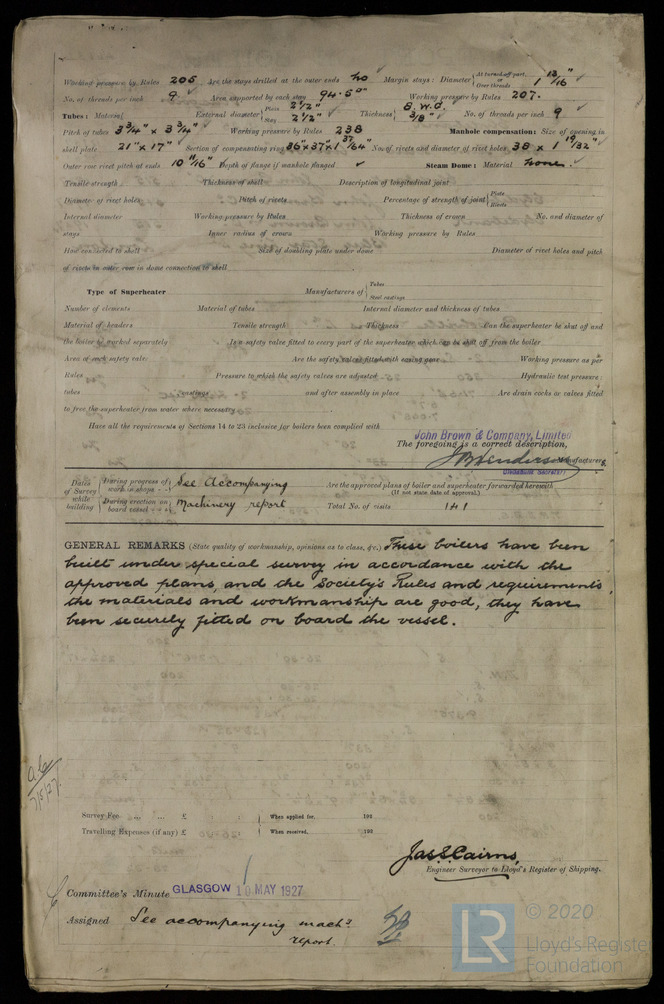 Working pressure by Rules 205 Are the stays drilled at the outer ends No Margin stays: Diameter { At turned off part, or Over threads 1 13/16"
No. of threads per inch 9 Area supported by each stay 94.5 □" Working pressure by Rules 207.
Tubes: Material External diameter { Plain 2 1/2" Stay 2 1/2" Thickness { 8 W.G. 3/8" No. of threads per inch 9
Pitch of tubes 3 3/4" x 3 3/4" Working pressure by Rules 238 Manhole compensation: Size of opening in
shell plate 21" x 17" Section of compensating ring 36" x 37" x 1 37/64" No. of rivets and diameter of rivet holes 38 x 1 19/32"
Outer row rivet pitch at ends 10 11/16" Depth of flange if manhole flanged Steam Dome: Material None.
Tensile strength Thickness of shell Description of longitudinal joint
Diameter of rivet holes Pitch of rivets Percentage of strength of joint { Plate Rivets
Internal diameter Working pressure by Rules Thickness of crown No. and diameter of
stays Inner radius of crown Working pressure by Rules
How connected to shell Size of doubling plate under dome Diameter of rivet holes and pitch
of rivets in outer row in dome connection to shell
Type of Superheater Manufacturers of { Tubes Steel castings
Number of elements Material of tubes Internal diameter and thickness of tubes
Material of headers Tensile strength Thickness Can the superheater be shut off and
the boiler be worked separately Is a safety valve fitted to every part of the superheater which can be shut off from the boiler
Area of each safety valve Are the safety valves fitted with easing gear Working pressure as per
Rules Pressure to which the safety valves are adjusted Hydraulic test pressure:
tubes castings and after assembly in place Are drain cocks or valves fitted
to free the superheater from water where necessary
Have all the requirements of Sections 14 to 23 inclusive for boilers been complied with
John Brown & Company, Limited
The foregoing is a correct description,
Manufacturers.
(Clydebank Secretary)
Dates of Survey while building { During progress of work in shops - - See Accompanying Are the approved plans of boiler and superheater forwarded herewith
(If not state date of approval.)
During erection on board vessel - - - Machinery report Total No. of visits 141
GENERAL REMARKS (State quality of workmanship, opinions as to class, &c.) These boilers have been
built under special survey in accordance with the
approved plans, and the Society's Rules and requirements,
the materials and workmanship are good, they have
been securely fitted on board the vessel.
7/5/27.
Survey Fee ... ... £ : : When applied for, 192
Travelling Expenses (if any) £ : : When received, 192
Jas. S. Cairns,
Engineer Surveyor to Lloyd's Register of Shipping.
Committee's Minute GLASGOW 10 MAY 1927
Assigned See accompanying machy
report.
LR © 2020
Lloyd's Register
Foundation